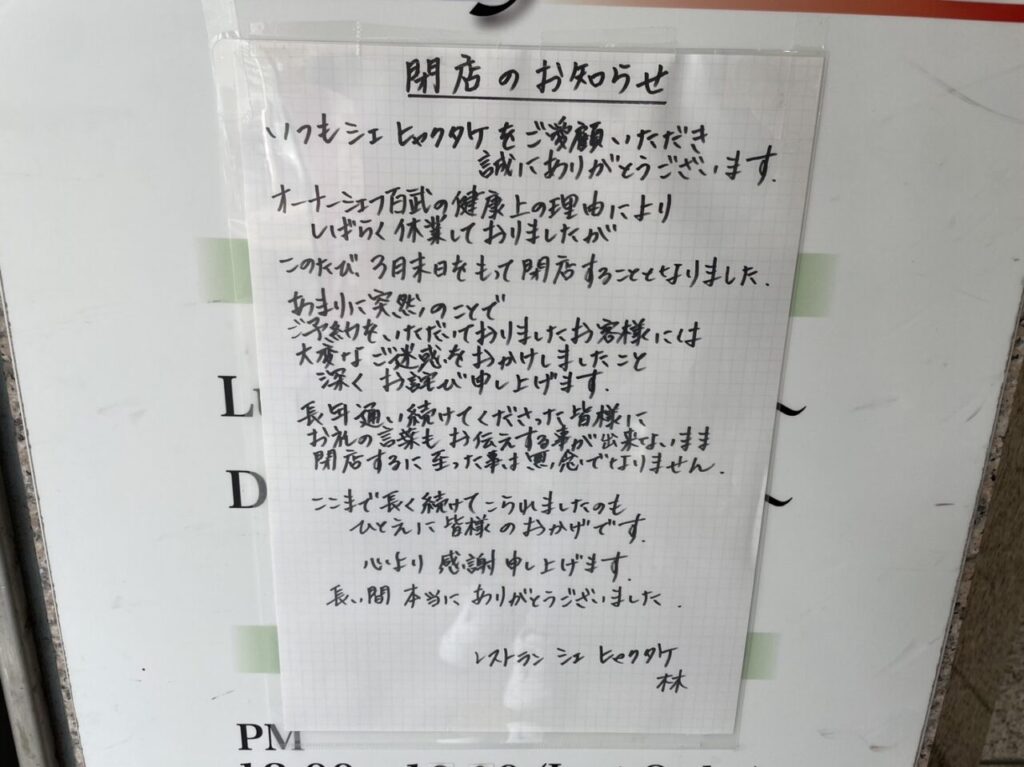 閉店のお知らせ
いつもシェ ヒャクタケをご愛顧いただき
誠にありがとうございます.
オーナーシェフ百武の健康上の理由により
しばらく休業しておりましたが
このたび、3月末日をもって閉店することとなりました.
あまりに突然のことで
ご予約をいただいておりましたお客様には
大変なご迷惑をおかけしましたこと
深く お詫び申し上げます.
長年通い続けてくださった皆様に
お礼の言葉も お伝えする事が出来ないまま
閉店するに至った事は 念でなりません.
ここまで長く続けてこられましたのも
ひとえに皆様のおかげです.
心より 感謝申し上げます.
長い間 本当に ありがとうございました.
レストラン シェ ヒャクタケ
林
L
~
D
~
PM